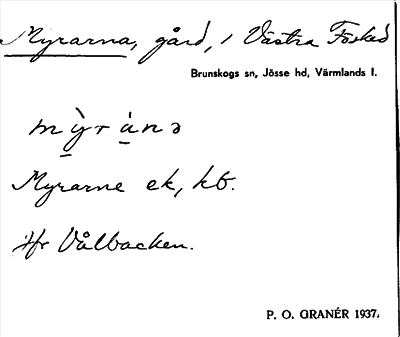 Myrarna, gård, i Västra Fösked
Brunskogs sn, Jösse hd, Värmlands l.
mỳránə
Myrarne ek, kb.
Jfr Vålbacken.
P. O. GRANÉR 1937.